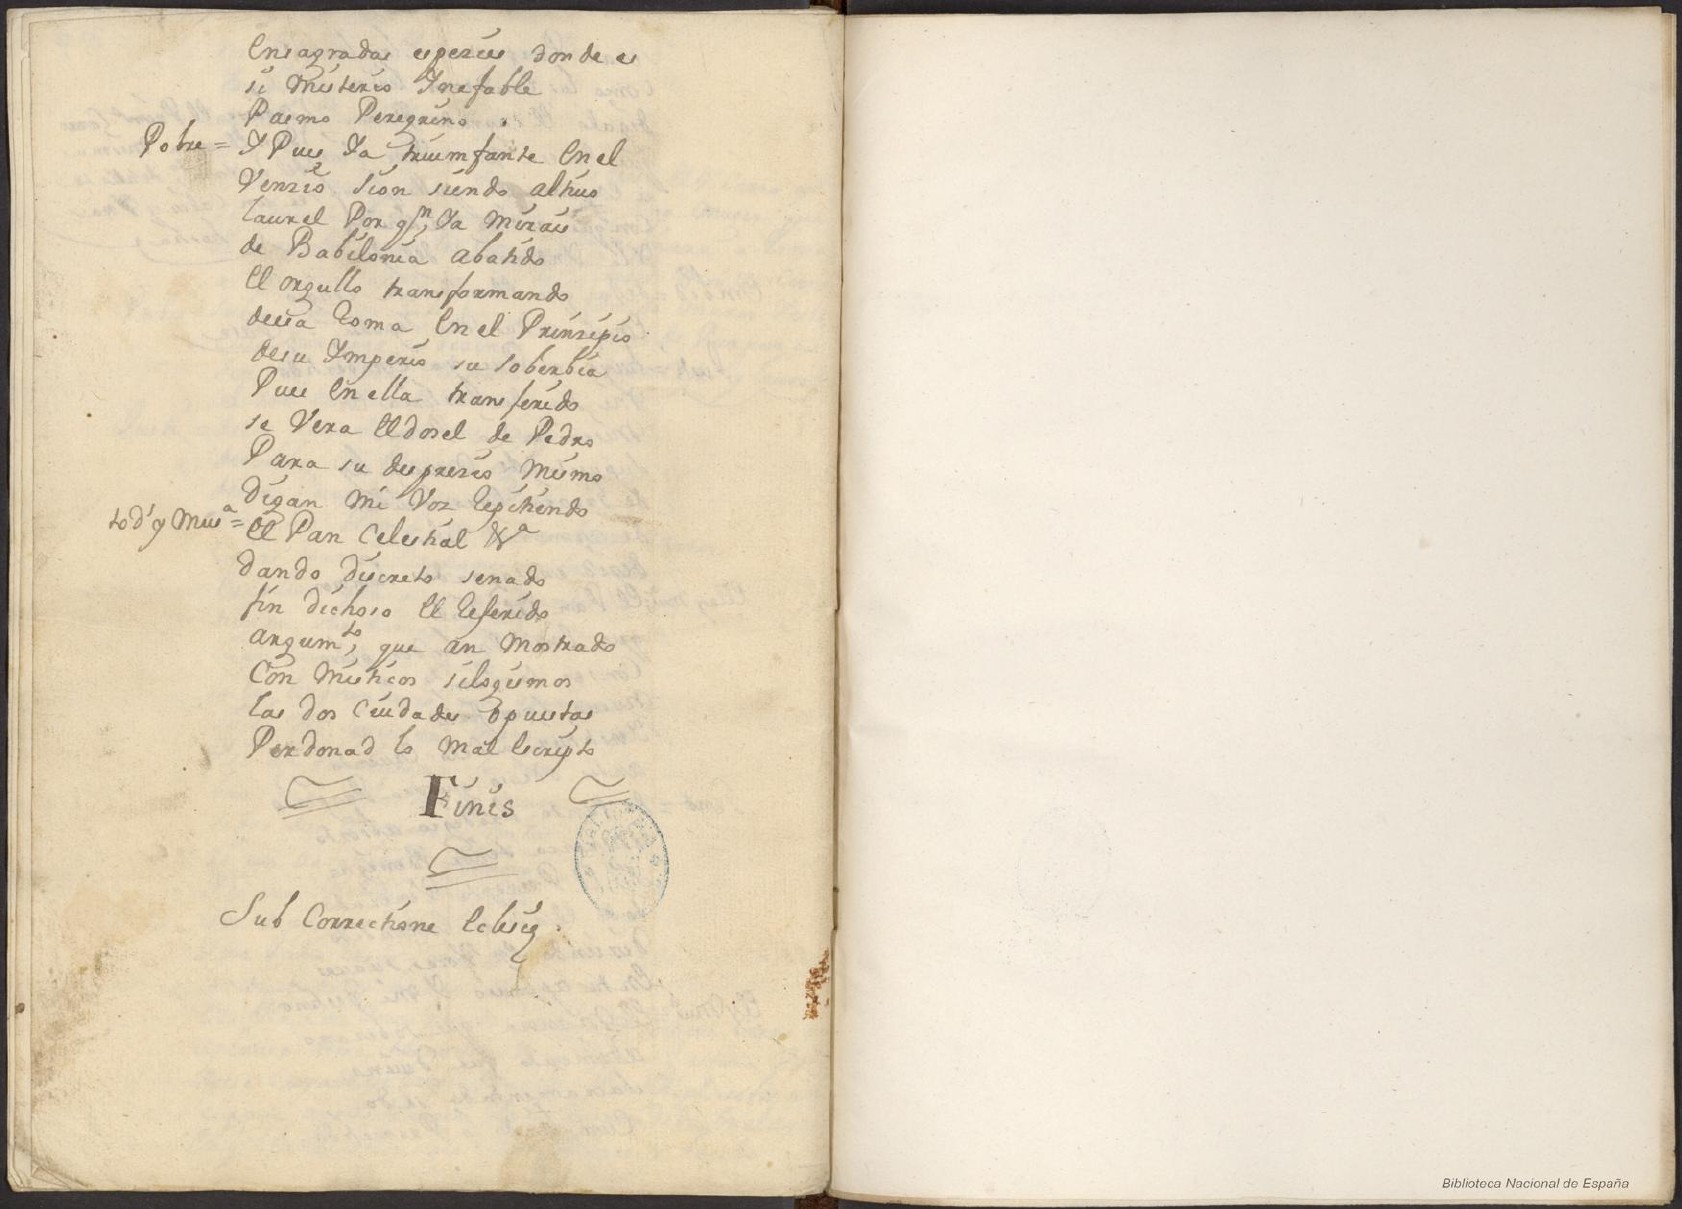 En sagradas especies donde es
si Misterio Ynefable
Pasmo Peregrino.
Pobre = Y Pues Ya triumfante En el
Venzio Sion siendo altiuo
laurel Por qn, Ya Mirais
de Babilonia abatido
El orgullo transformando
desta Roma En el Prinzipio
de su Ymperio su soberbia
Pues En ella transferido
se Vera El dosel de Pedro
Para su desprezio Mismo
digan Mi Voz Repitiendo
tods y Musa = El Pan Celestial &a
dando discreto senado
fin dichoso El Referido
argumto, que an Mostrado
Con Misticos silogismos
las dos Ciudades opuestas
Perdonad lo Mal Escripto
Finis
Sub Correctione Eclesię.
Biblioteca Nacional de España